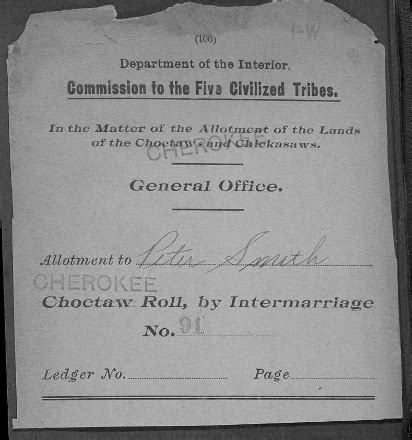 1-W
(106)
Department of the Interior.
Commission to the Five Civilized Tribes.
In the Matter of the Allotment of the Lands
of the Choctaws and Chickasaws.
CHEROKEE
General Office.
Allotment to Peter Smith
CHEROKEE
Choctaw Roll, by Intermarriage
No. 91
Ledger No. Page